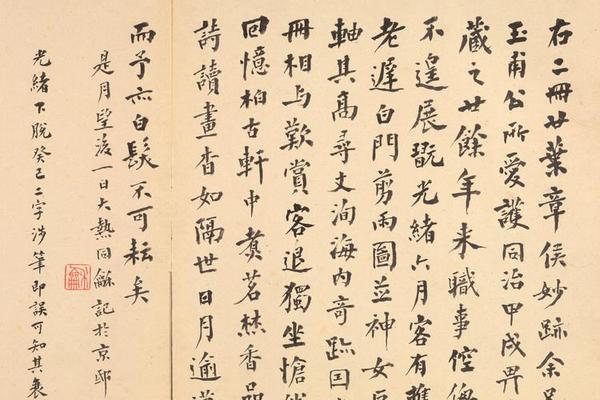 右二冊廿葉章侯妙跡余
玉甫公所愛護同治甲戌畀
藏之廿餘年来職事倥
不遑展翫光緒六月客有攜
老遲白門剪雨圖並神女
軸其高尋丈洵海内奇跡因
冊相与歎賞客退獨坐愴
回憶柏古軒中煑茗焚香品
詩讀畫杳如隔世日月逾
而予亦白髮不可耘矣
是月望後一日大熱同龢記於京邸
光緒下脫癸巳二字涉筆即誤可知其衰